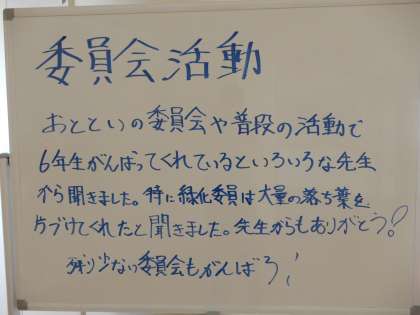 委員会活動
おとといの委員会や普段の活動で
6年生ががんばってくれているといろいろな先生
から聞きました。特に緑化委員は大量の落ち葉を
片づけてくれたと聞きました。先生からもありがとう!
残り少ない委員会もがんばろう!